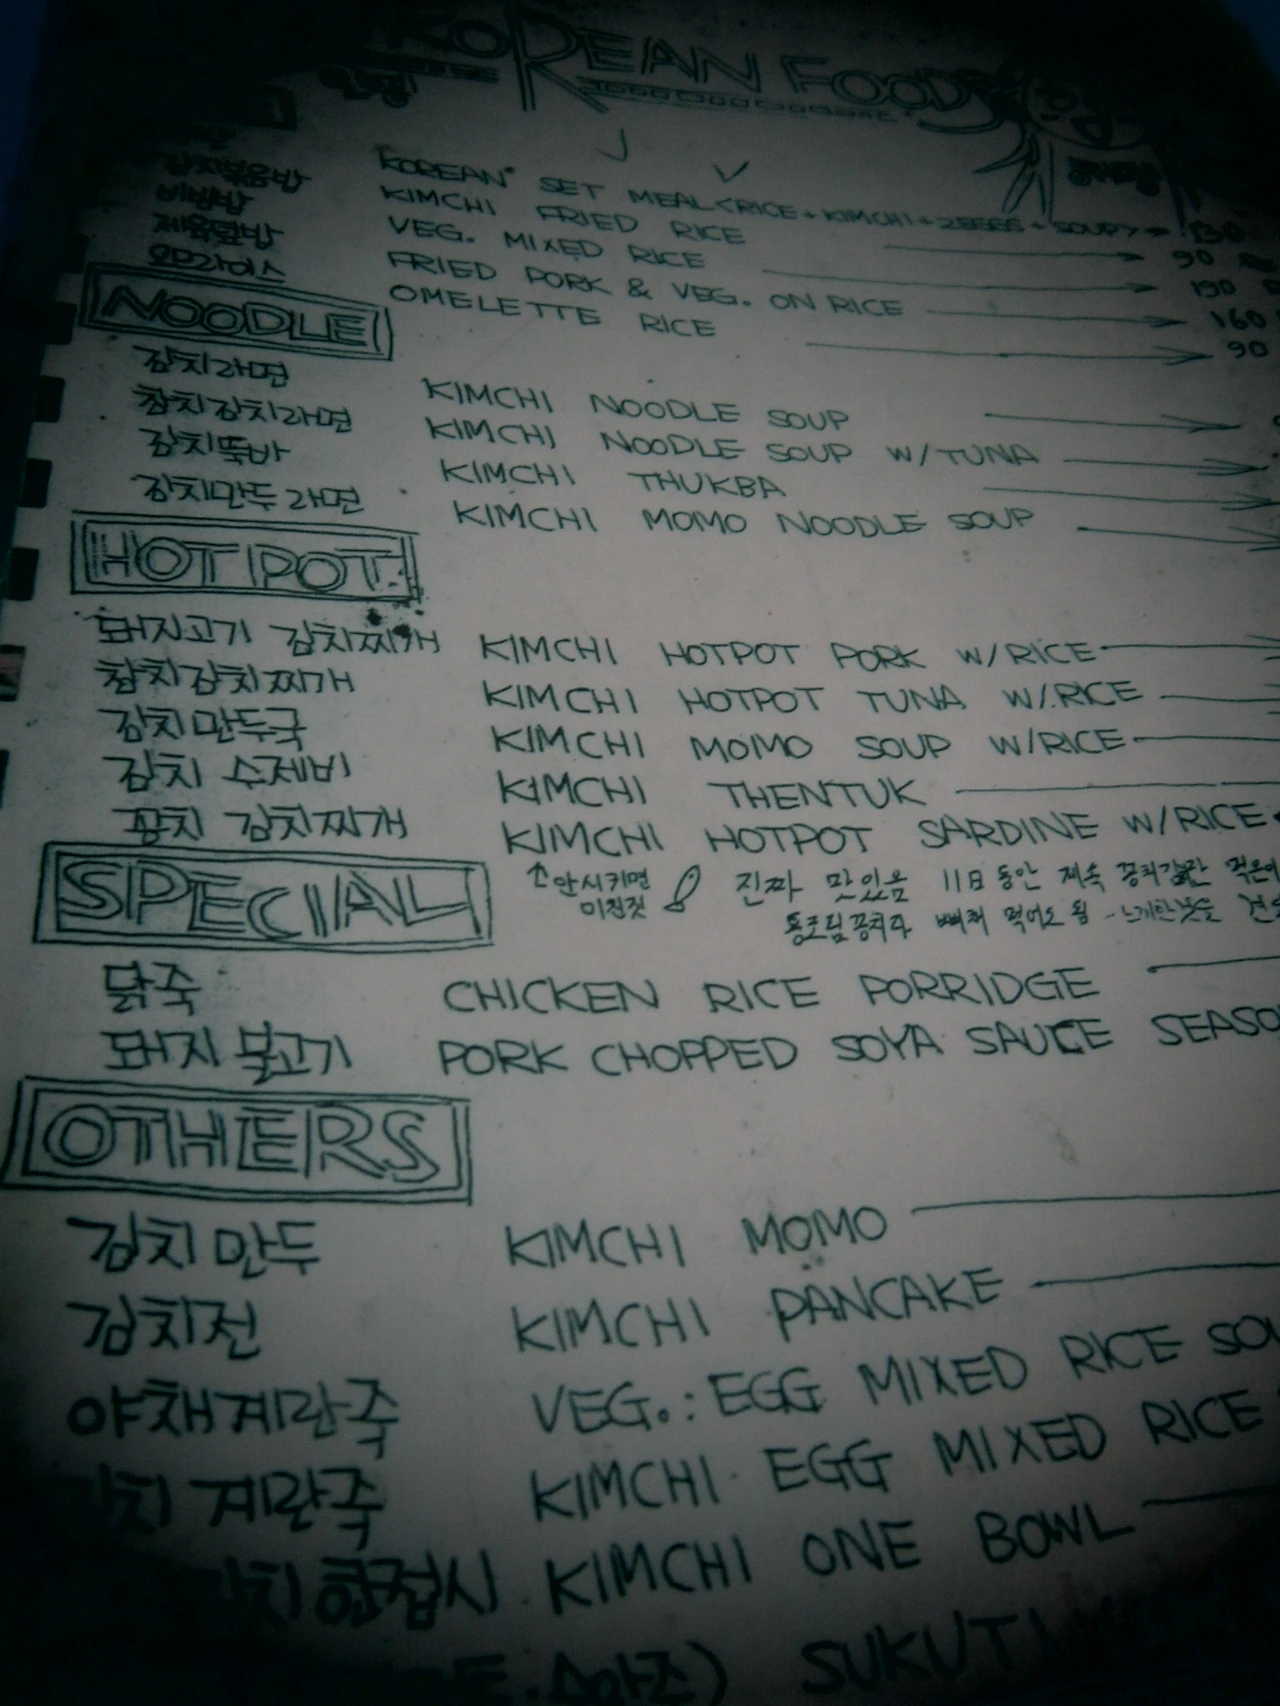 KOREAN FOODS
KOREAN SET MEAL <RICE + KIMCHI + 2 EGGS + SOUP> 130
김치볶음밥 KIMCHI FRIED RICE 90
비빔밥 VEG. MIXED RICE 190
제육덮밥 FRIED PORK & VEG. ON RICE 160
오므라이스 OMELETTE RICE 90
NOODLE
김치라면 KIMCHI NOODLE SOUP
참치김치라면 KIMCHI NOODLE SOUP W/TUNA
김치뚝바 KIMCHI THUKBA
김치만두라면 KIMCHI MOMO NOODLE SOUP
HOT POT
돼지고기 김치찌개 KIMCHI HOTPOT PORK W/RICE
참치김치찌개 KIMCHI HOTPOT TUNA W/RICE
김치만두국 KIMCHI MOMO SOUP W/RICE
김치 수제비 KIMCHI THENTUK
꽁치 김치찌개 KIMCHI HOTPOT SARDINE W/RICE
↑안시키면 진짜 맛있음 11日동안 계속 먹은
미친짓 빼채 먹어도 됨
SPECIAL
닭죽 CHICKEN RICE PORRIDGE
돼지 불고기 PORK CHOPPED SOYA SAUCE SEASO
OTHERS
김치만두 KIMCHI MOMO
김치전 KIMCHI PANCAKE
야채계란죽 VEG.: EGG MIXED RICE SOU
김치 계란죽 KIMCHI EGG MIXED RICE
김치한접시 KIMCHI ONE BOWL
SUKUTI